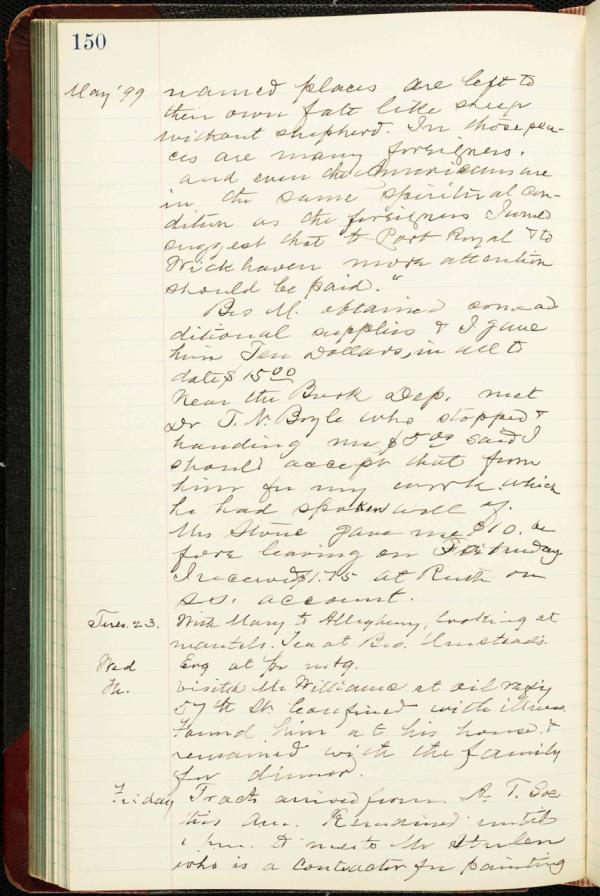 150
May '99 named places are left to
their own fate like sheep
without shepherd. In those pla-
ces are many foreigners.
and even the Americans are
in the same spiritual con-
dition as the foreigners I would
suggest that to Port Royal & to
Wickhaven more attention
should be paid."
Bro M. obtained some ad
ditional supplies & I gave
him Ten Dollars, in all to
date $15.00
Near the Book Dep. met
Dr T. N. Boyle who stopped &
handing me $5.00 said I
should accept that from
him for my work which
he had spoken well of.
Mrs Stone gave me $10. be
fore leaving on Saturday
I received $1.75 at Ruth on
S.S. account.
Tues. 23. With Mary to Allegheny, looking at
mantels. Tea at Bro. Umstead's.
Wed Evg at pr mtg.
Th. Visited Mr Williams at oil
57th St confined with illness
Found him at his house &
remained with the family
for dinner.
Friday Tracts arrived from A. T. Soc
this Am. Remained until
1 pm. to meet Mr
who is a contractor for painting